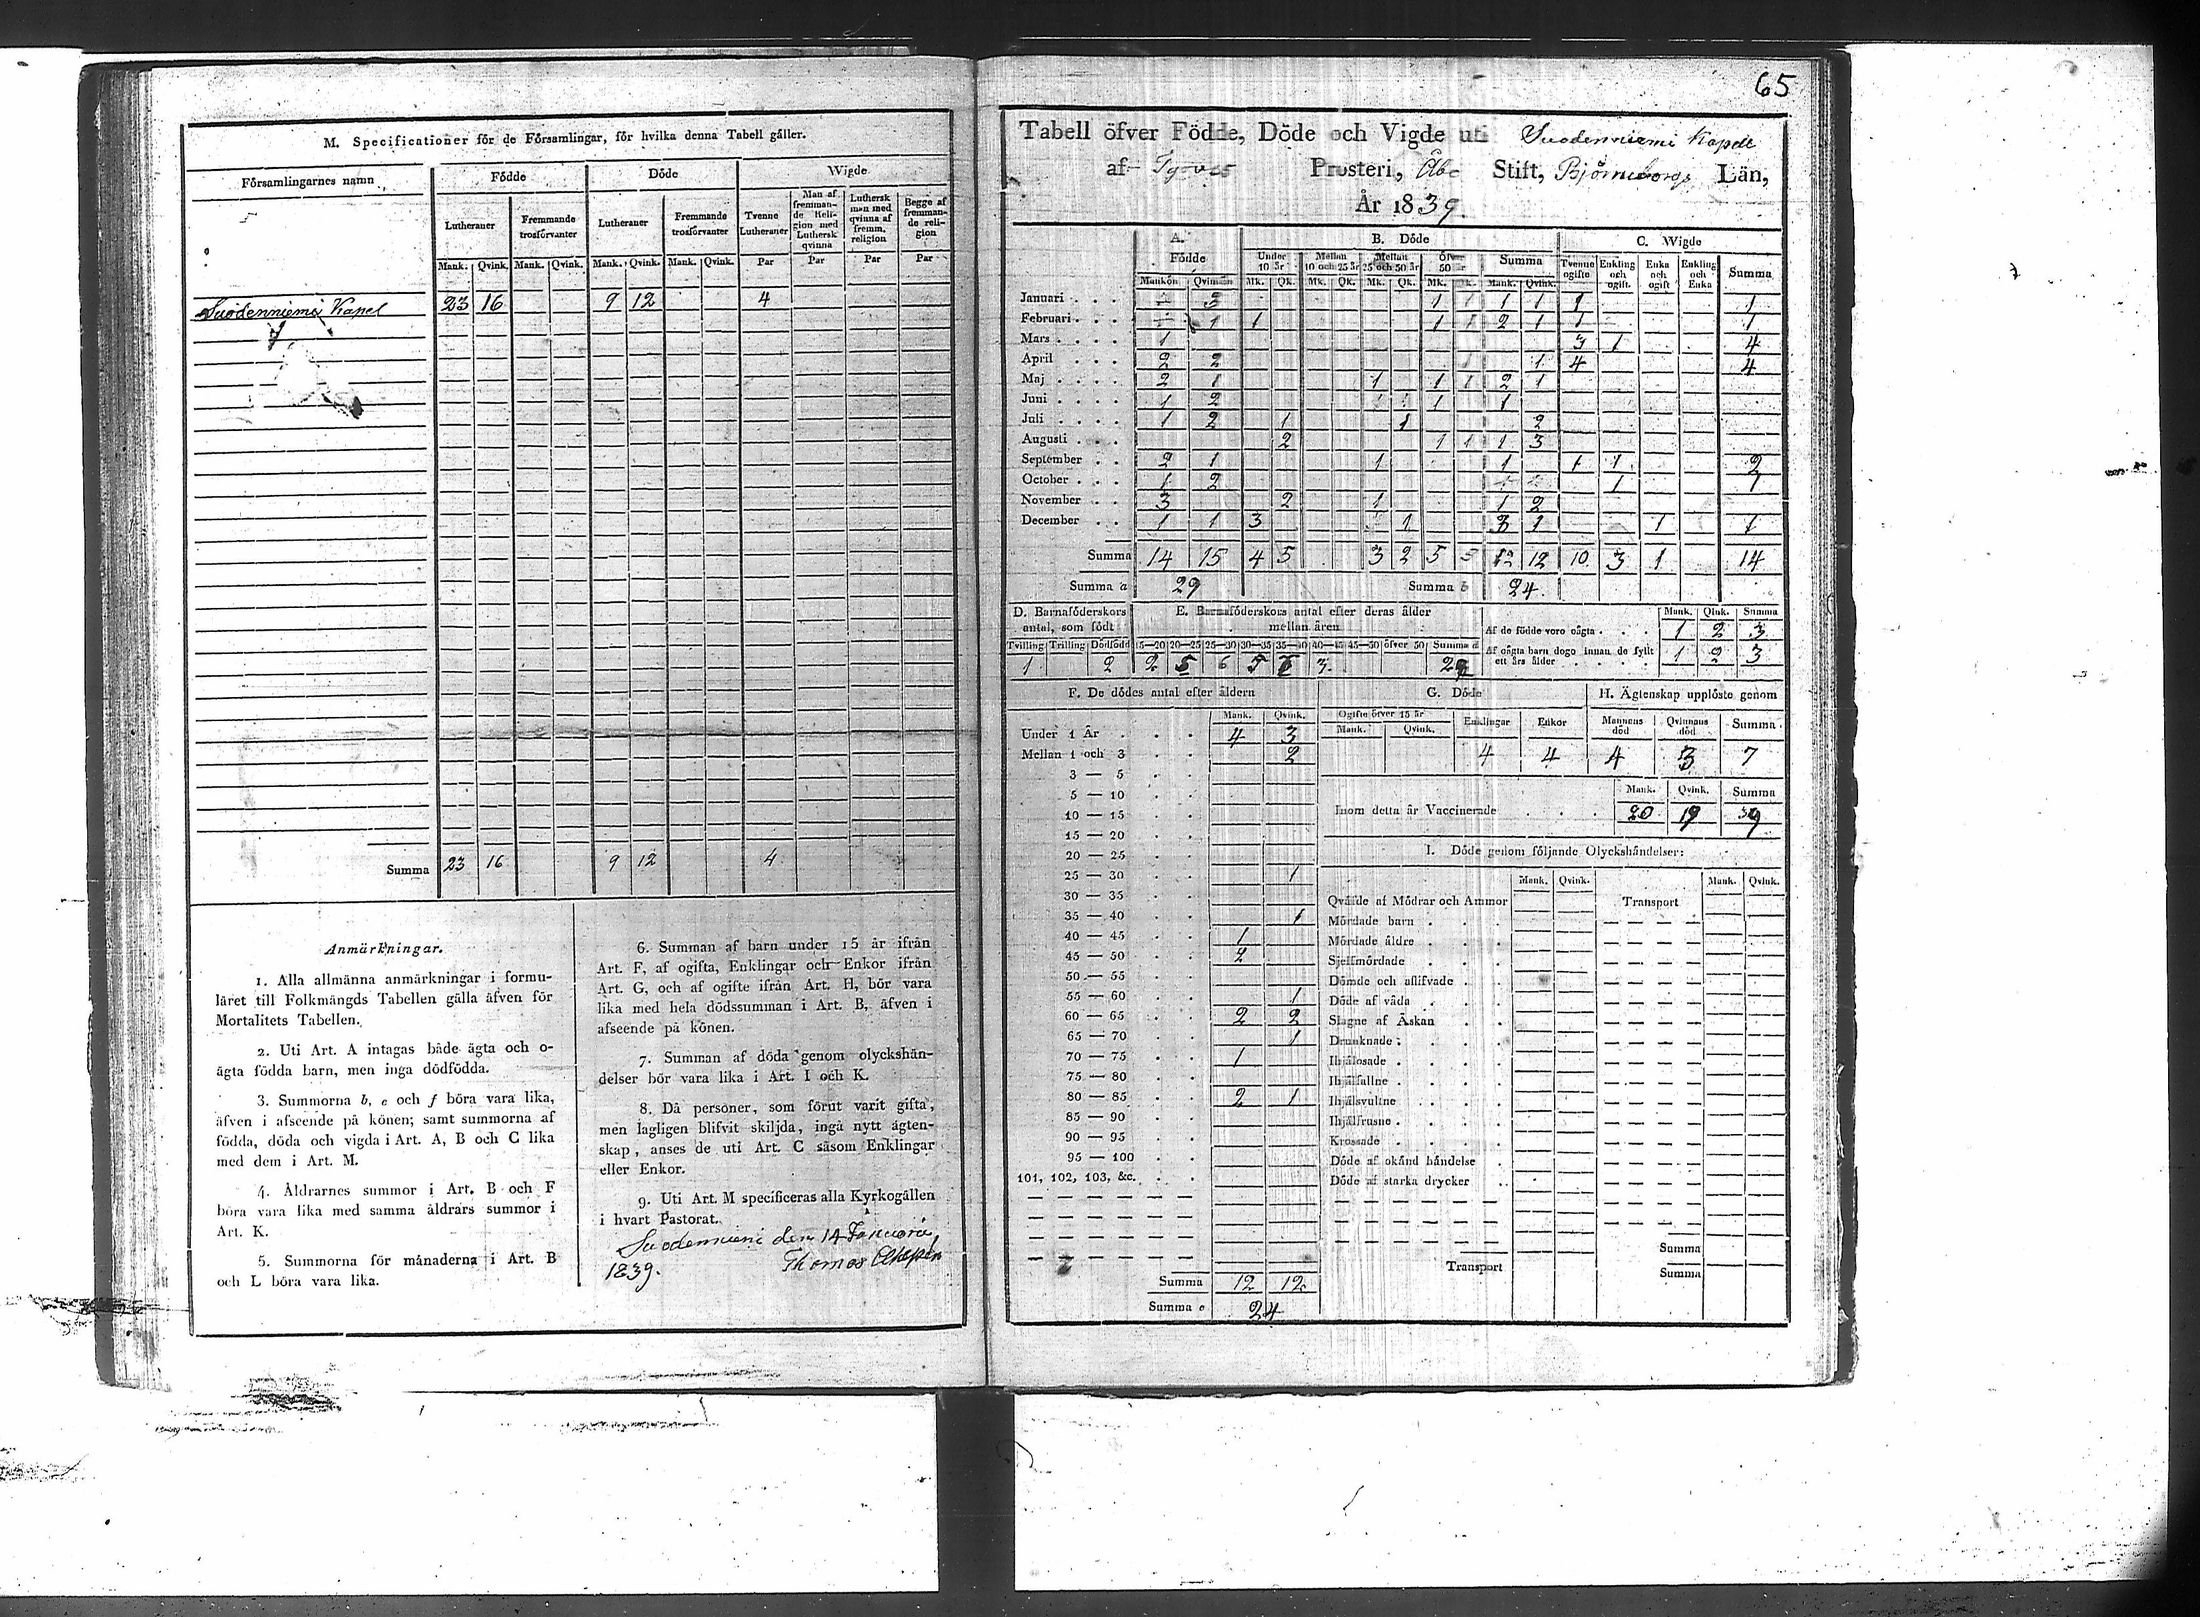 M. Specificationer för de Församlingar, för hvilka denna Tabell gäller.
Församlingarnes namn
Födde
Döde
Wigde
Lutheraner
Fremmande trosförvanter
Lutheraner
Fremmande trosförvanter
Tvenne Lutheraner
Man af fremmande Religion med Luthersk qvinna
Luthersk man med qvinna af fremm. religion
Begge af fremmande religion
Mank. Qvink. Mank. Qvink. Mank. Qvink. Mank. Qvink. Par Par Par Par
Suodenniemi Kapel 23 16 9 12 4
Summa 23 16 9 12 4
Anmärkningar.
1. Alla allmänna anmärkningar i formu-
läret till Folkmängds Tabellen gälla äfven för
Mortalitets Tabellen.
2. Uti Art. A intagas både ägta och o-
ägta födda barn, men inga dödfödda.
3. Summorna b, e och f böra vara lika,
äfven i afseende på könen; samt summorna af
födda, döda och vigda i Art. A, B och C lika
med dem i Art. M.
4. Åldrarnes summor i Art. B och F
böra vara lika med samma åldrars summor i
Art. K.
5. Summorna för månaderna i Art. B
och L böra vara lika.
6. Summan af barn under 15 år ifrån
Art. F, af ogifta, Enklingar och Enkor ifrån
Art. G, och af ogifte ifrån Art. H, bör vara
lika med hela dödssumman i Art. B, äfven i
afseende på könen.
7. Summan af döda genom olyckshän-
delser bör vara lika i Art. I och K.
8. Då personer, som förut varit gifta,
men lagligen blifvit skiljda, ingå nytt ägten-
skap, anses de uti Art. C såsom Enklingar
eller Enkor.
9. Uti Art. M specificeras alla Kyrkogällen
i hvart Pastorat.
Suodenniemi den 14 Januarii
1839. Thomas
65
Tabell öfver Födde, Döde och Vigde uti Suodenniemi Kapell
af Tyrvis Prosteri, Åbo Stift, Björneborgs Län,
År 1839.
A. Födde
B. Döde
C. Wigde
Under 10 år
Mellan 10 och 25 år
Mellan 25 och 50 år
Öfver 50 år
Summa
Tvenne ogifte
Enkling och ogift
Enka och ogift
Enkling och Enka
Summa
Mankön Qvinkön Mk. Qk. Mk. Qk. Mk. Qk. Mk. Qk. Mank. Qvink.
Januari 3 1 1 1 1 1 1
Februari 1 1 1 1 2 1 1 1
Mars 1 3 1 4
April 2 2 1 1 4 4
Maj 2 1 1 1 1 2 1
Juni 1 2 1 1
Juli 1 2 1 1 2
Augusti 2 1 1 1 3
September 2 1 1 1 1 1 2
October 1 2 1 1
November 3 2 1 1 2
December 1 1 3 1 3 1 1 1
Summa 14 15 4 5 3 2 5 5 12 12 10 3 1 14
Summa a 29 Summa b 24
D. Barnaföderskors antal, som födt
E. Barnaföderskors antal efter deras ålder mellan åren
Mank. Qink. Summa
Af de födde voro oägta 1 2 3
Tvilling Trilling Dödfödd 15—20 20—25 25—30 30—35 35—40 40—45 45—50 öfver 50 Summa d
Af oägta barn dogo innan de fyllt ett års ålder 1 2 3
1 2 2 5 6 5 3
F. De dödes antal efter åldern
G. Döde
H. Ägtenskap upplöste genom
Mank. Qvink.
Ogifte öfver 15 år
Mank. Qvink.
Enklingar
Enkor
Mannens död
Qvinnans död
Summa
4 4 4 3 7
Under 1 År 4 3
Mellan 1 och 3 2
3 — 5
5 — 10
10 — 15
15 — 20
20 — 25
25 — 30 1
30 — 35
35 — 40 1
40 — 45 1
45 — 50 2
50 — 55
55 — 60 1
60 — 65 2 2
65 — 70 1
70 — 75 1
75 — 80
80 — 85 2 1
85 — 90
90 — 95
95 — 100
101, 102, 103, &c.
Summa 12 12
Summa e 24
Mank. Qvink. Summa
Inom detta år Vaccinerade 20 19 39
I. Döde genom följande Olyckshändelser:
Mank. Qvink. Mank. Qvink.
Qväfde af Mödrar och Ammor
Transport
Mördade barn
Mördade äldre
Sjelfmördade
Dömde och aflifvade
Döde af våda
Slagne af Åskan
Drunknade
Ihjälosade
Ihjälfallne
Ihjälsvultne
Ihjälfrusne
Krossade
Döde af okänd händelse
Döde af starka drycker
Summa
Transport
Summa